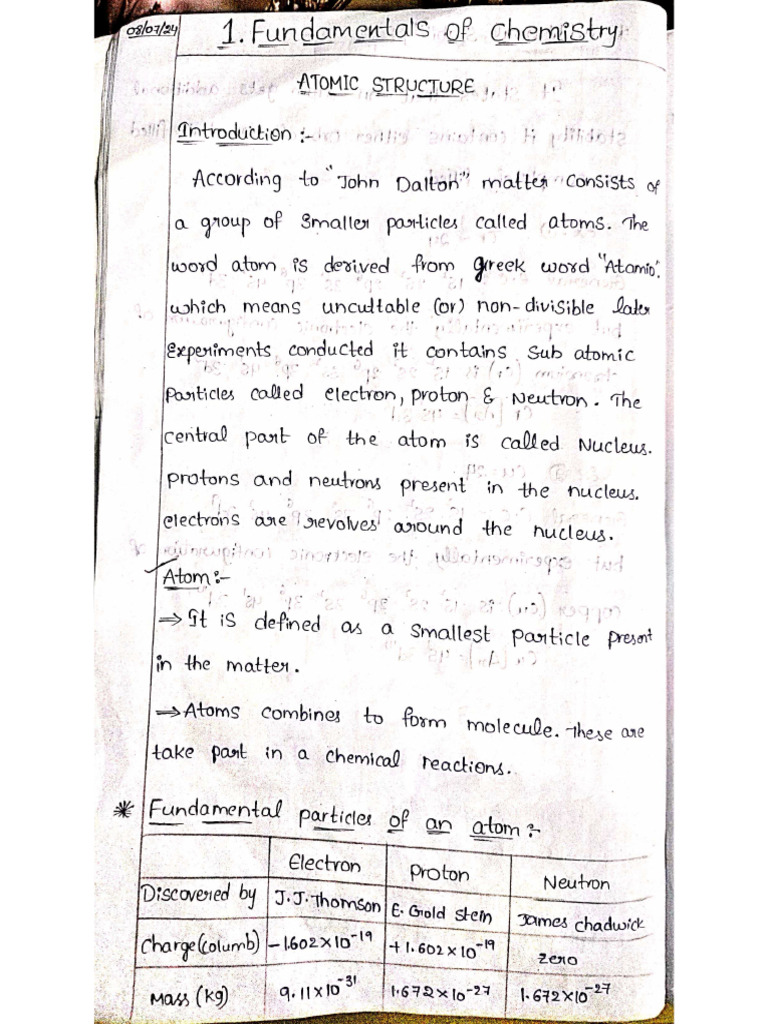 08/07/24
1. Fundamentals of Chemistry
ATOMIC STRUCTURE
Introduction :-
According to "John Dalton" matter consists of
a group of smaller particles called atoms. The
word atom is derived from greek word "Atomio".
which means uncuttable (or) non-divisible later
experiments conducted it contains sub atomic
particles called electron, proton & Neutron. The
central part of the atom is called Nucleus.
protons and neutrons present in the nucleus.
electrons are revolves around the nucleus.
Atom :-
⇒ It is defined as a smallest particle present
in the matter.
⇒ Atoms combines to form molecule. These are
take part in a chemical reactions.
* Fundamental particles of an atom :-
Electron Proton Neutron
Discovered by J.J. Thomson E. Gold stein James chadwick
Charge (columb) -1.602×10⁻¹⁹ +1.602×10⁻¹⁹ zero
Mass (kg) 9.11×10⁻³¹ 1.672×10⁻²⁷ 1.672×10⁻²⁷